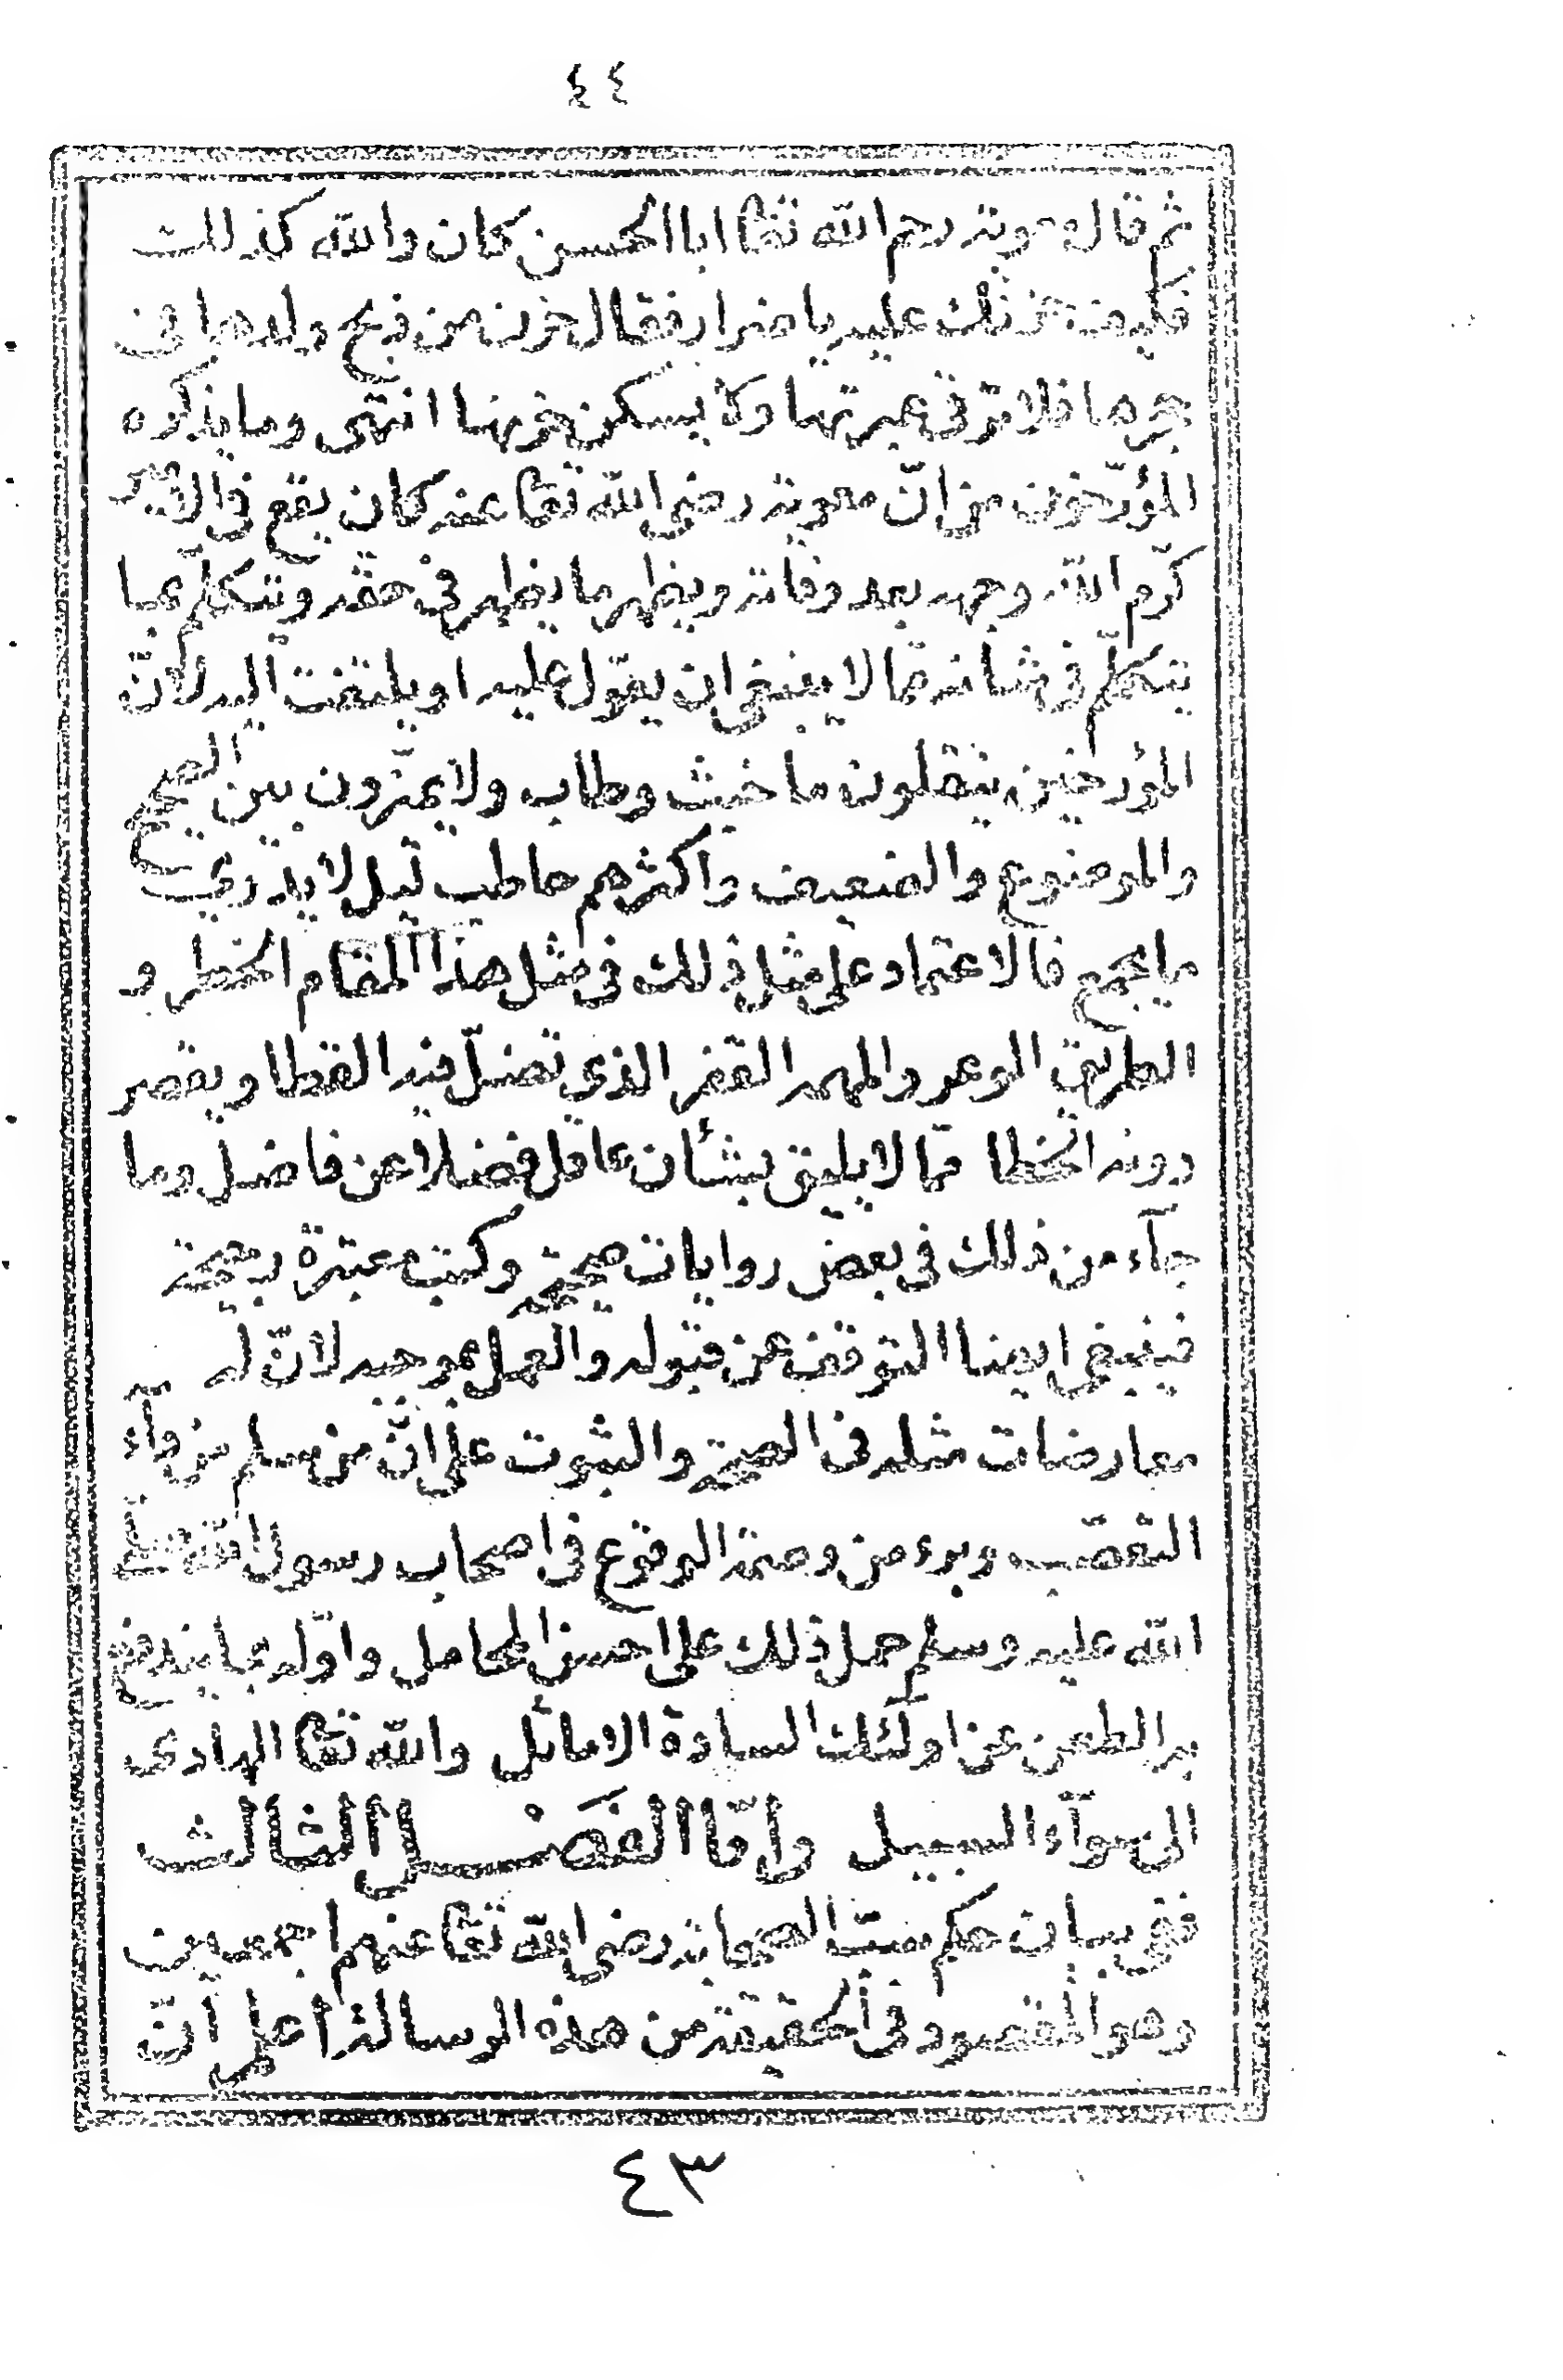 ٤٤
ثم قال معوية رحم الله تعا ابا الحسن كان والله كذلك
فكيف حزنك عليه يا ضرار فقال حزن من ذبح ولدها في
حجرها فلا ترقى عبرتها ولا يسكن حزنها انتهى وما يذكره
المؤرّخون من انّ معوية رضى الله تعا عنه كان يقع في الامير
كرّم الله وجهه بعد وفاته ويظهر ما يظهر في حقه ويتكلّم بما
يتكلّم في شأنه ممّا لا ينبغي ان يعوّل عليه او يلتفت اليه لانّ
المؤرخين ينقلون ما خبث وطاب ولا يميّزون بين الصحيح
والموضوع والضعيف واكثرهم حاطب ليل لا يدري
ما يجمع فالاعتماد على مثل ذلك في مثل هذا المقام الخطر و
الطريق الوعر والمهمه القفر الذي تضلّ فيه القطا ويقصر
دونه الخطا ممّا لا يليق بشأن عاقل فضلا عن فاضل وما
جآء من ذلك في بعض روايات صحيحة وكتب معتبرة رجيحة
فينبغي ايضا التوقف عن قبوله والعمل بموجبه لانّ له
معارضات مثله في الصحة والثبوت على انّ من سلم من دآء
التعصّب وبرء من وصمة الوقوع في اصحاب رسول الله صلى
الله عليه وسلم حمل ذلك على احسن المحامل واوّله بما يندفع
به الطعن عن اولٓئك السادة الاماثل والله تعا الهادي
الى سوآء السبيل وامّا الفَصْل الثالث
ففي بيان حكم سبّ الصحابة رضى الله تعا عنهم اجمعين
وهو المقصود في الحقيقة من هذه الرسالة اعلم انّ
٤٣